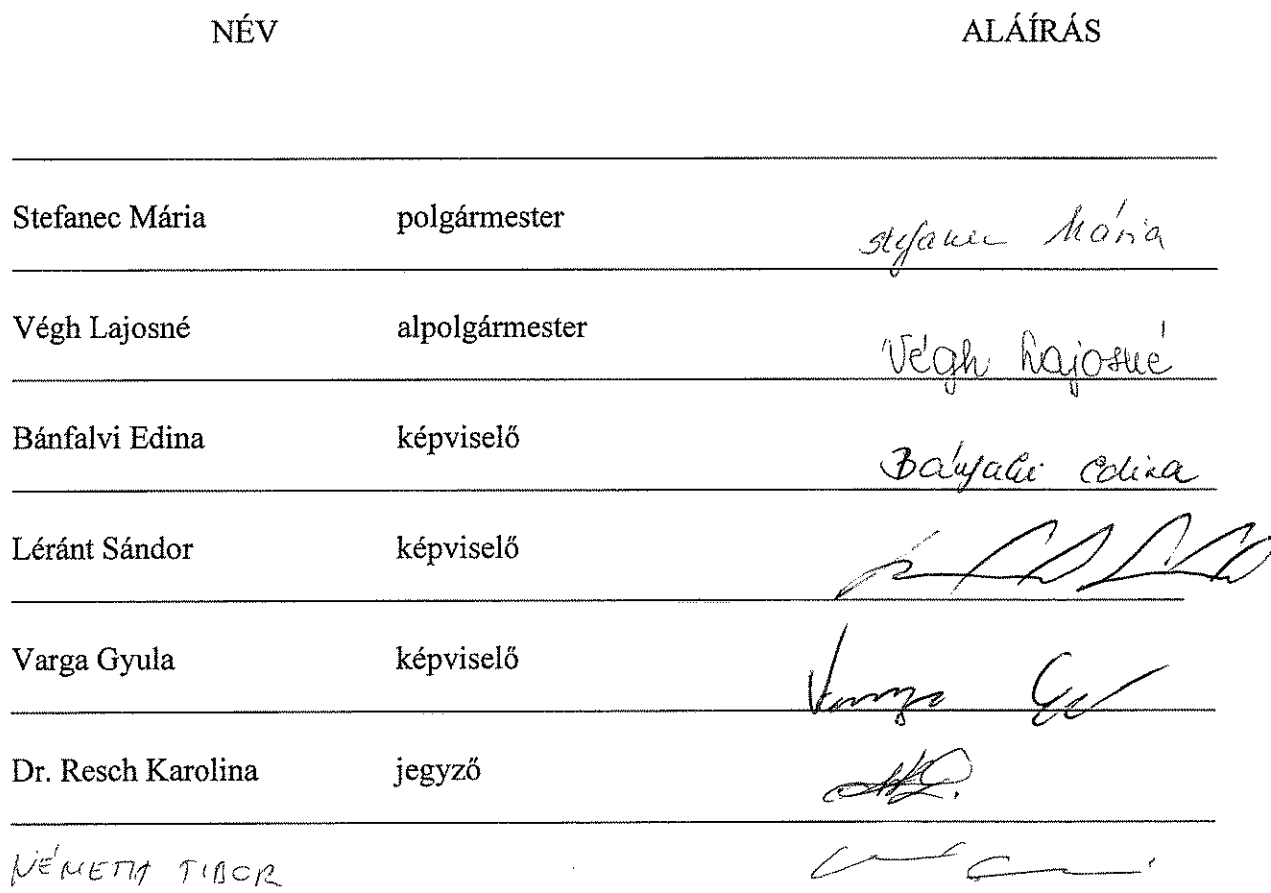 NÉV ALÁÍRÁS
Stefanec Mária polgármester Stefanec Mária
Végh Lajosné alpolgármester Végh Lajosné
Bánfalvi Edina képviselő Bánfalvi Edina
Léránt Sándor képviselő
Varga Gyula képviselő Varga
Dr. Resch Karolina jegyző
NÉMETH TIBOR